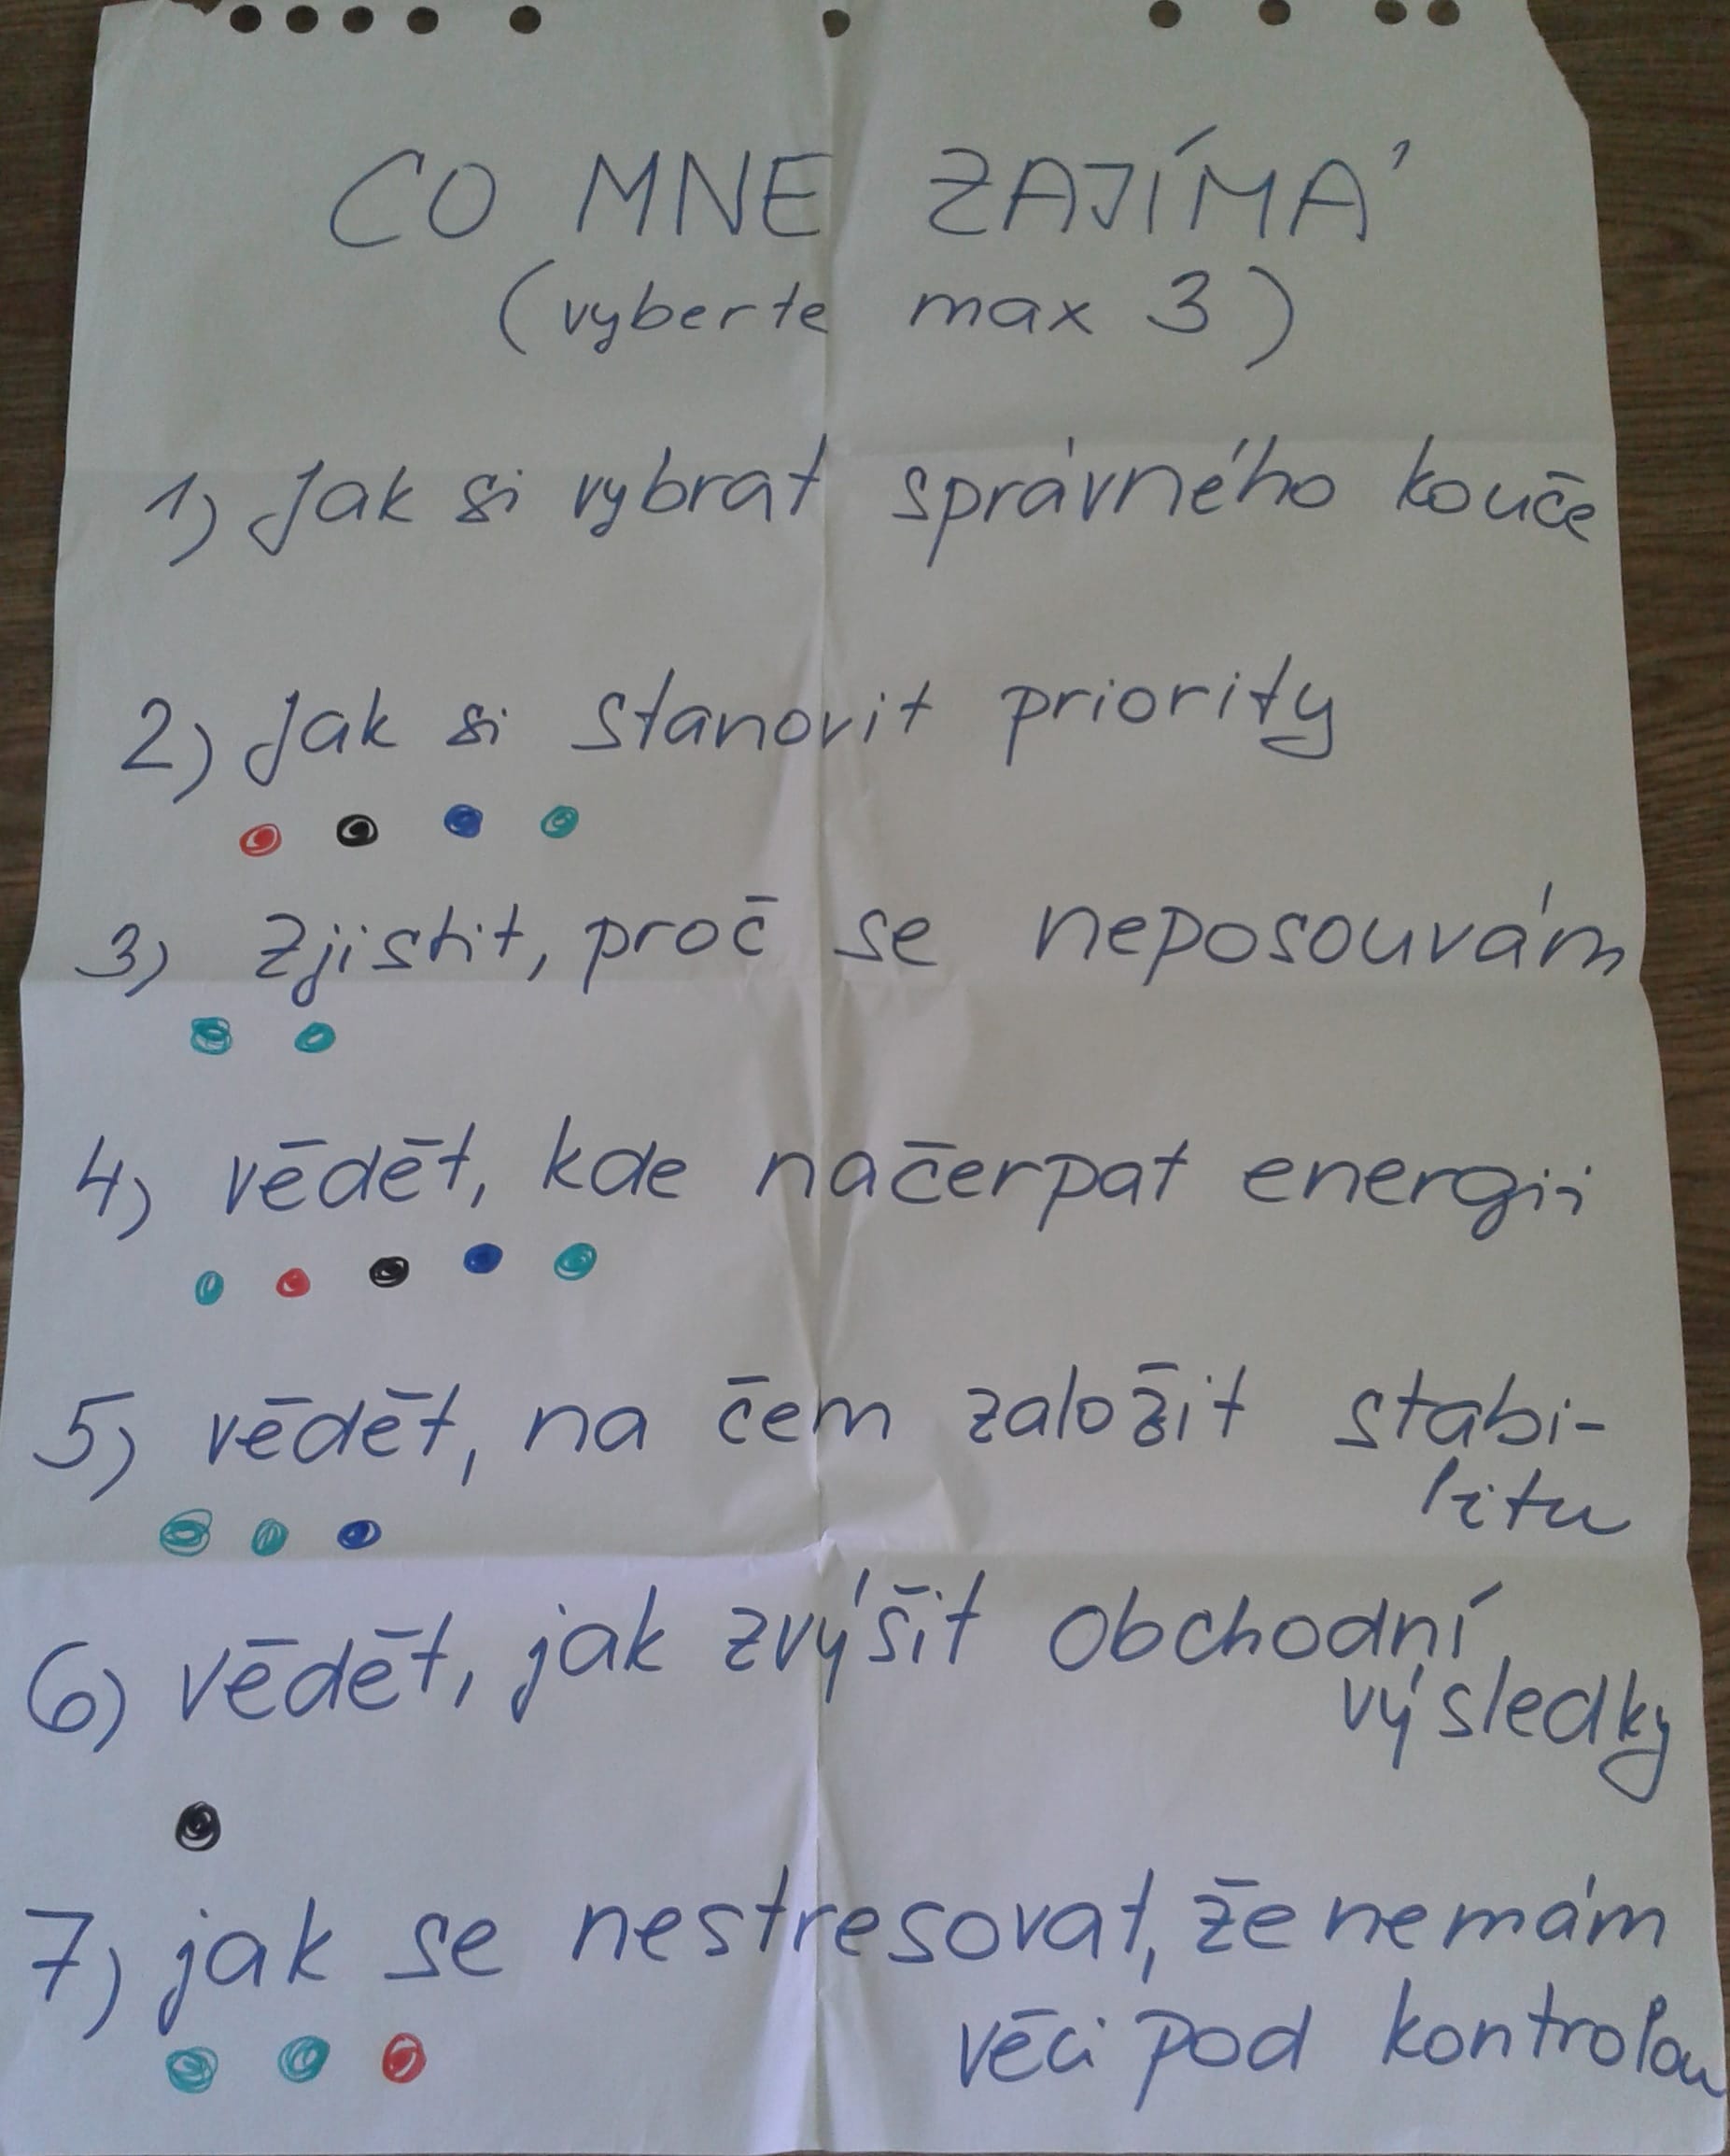 CO MNE ZAJÍMÁ
(vyberte max 3)
1) Jak si vybrat správného kouče
2) Jak si stanovit priority
3) Zjistit, proč se neposouvám
4) vědět, kde načerpat energii
5) vědět, na čem založit stabi-
litu
6) vědět, jak zvýšit obchodní
výsledky
7) jak se nestresovat, že nemám
věci pod kontrolou